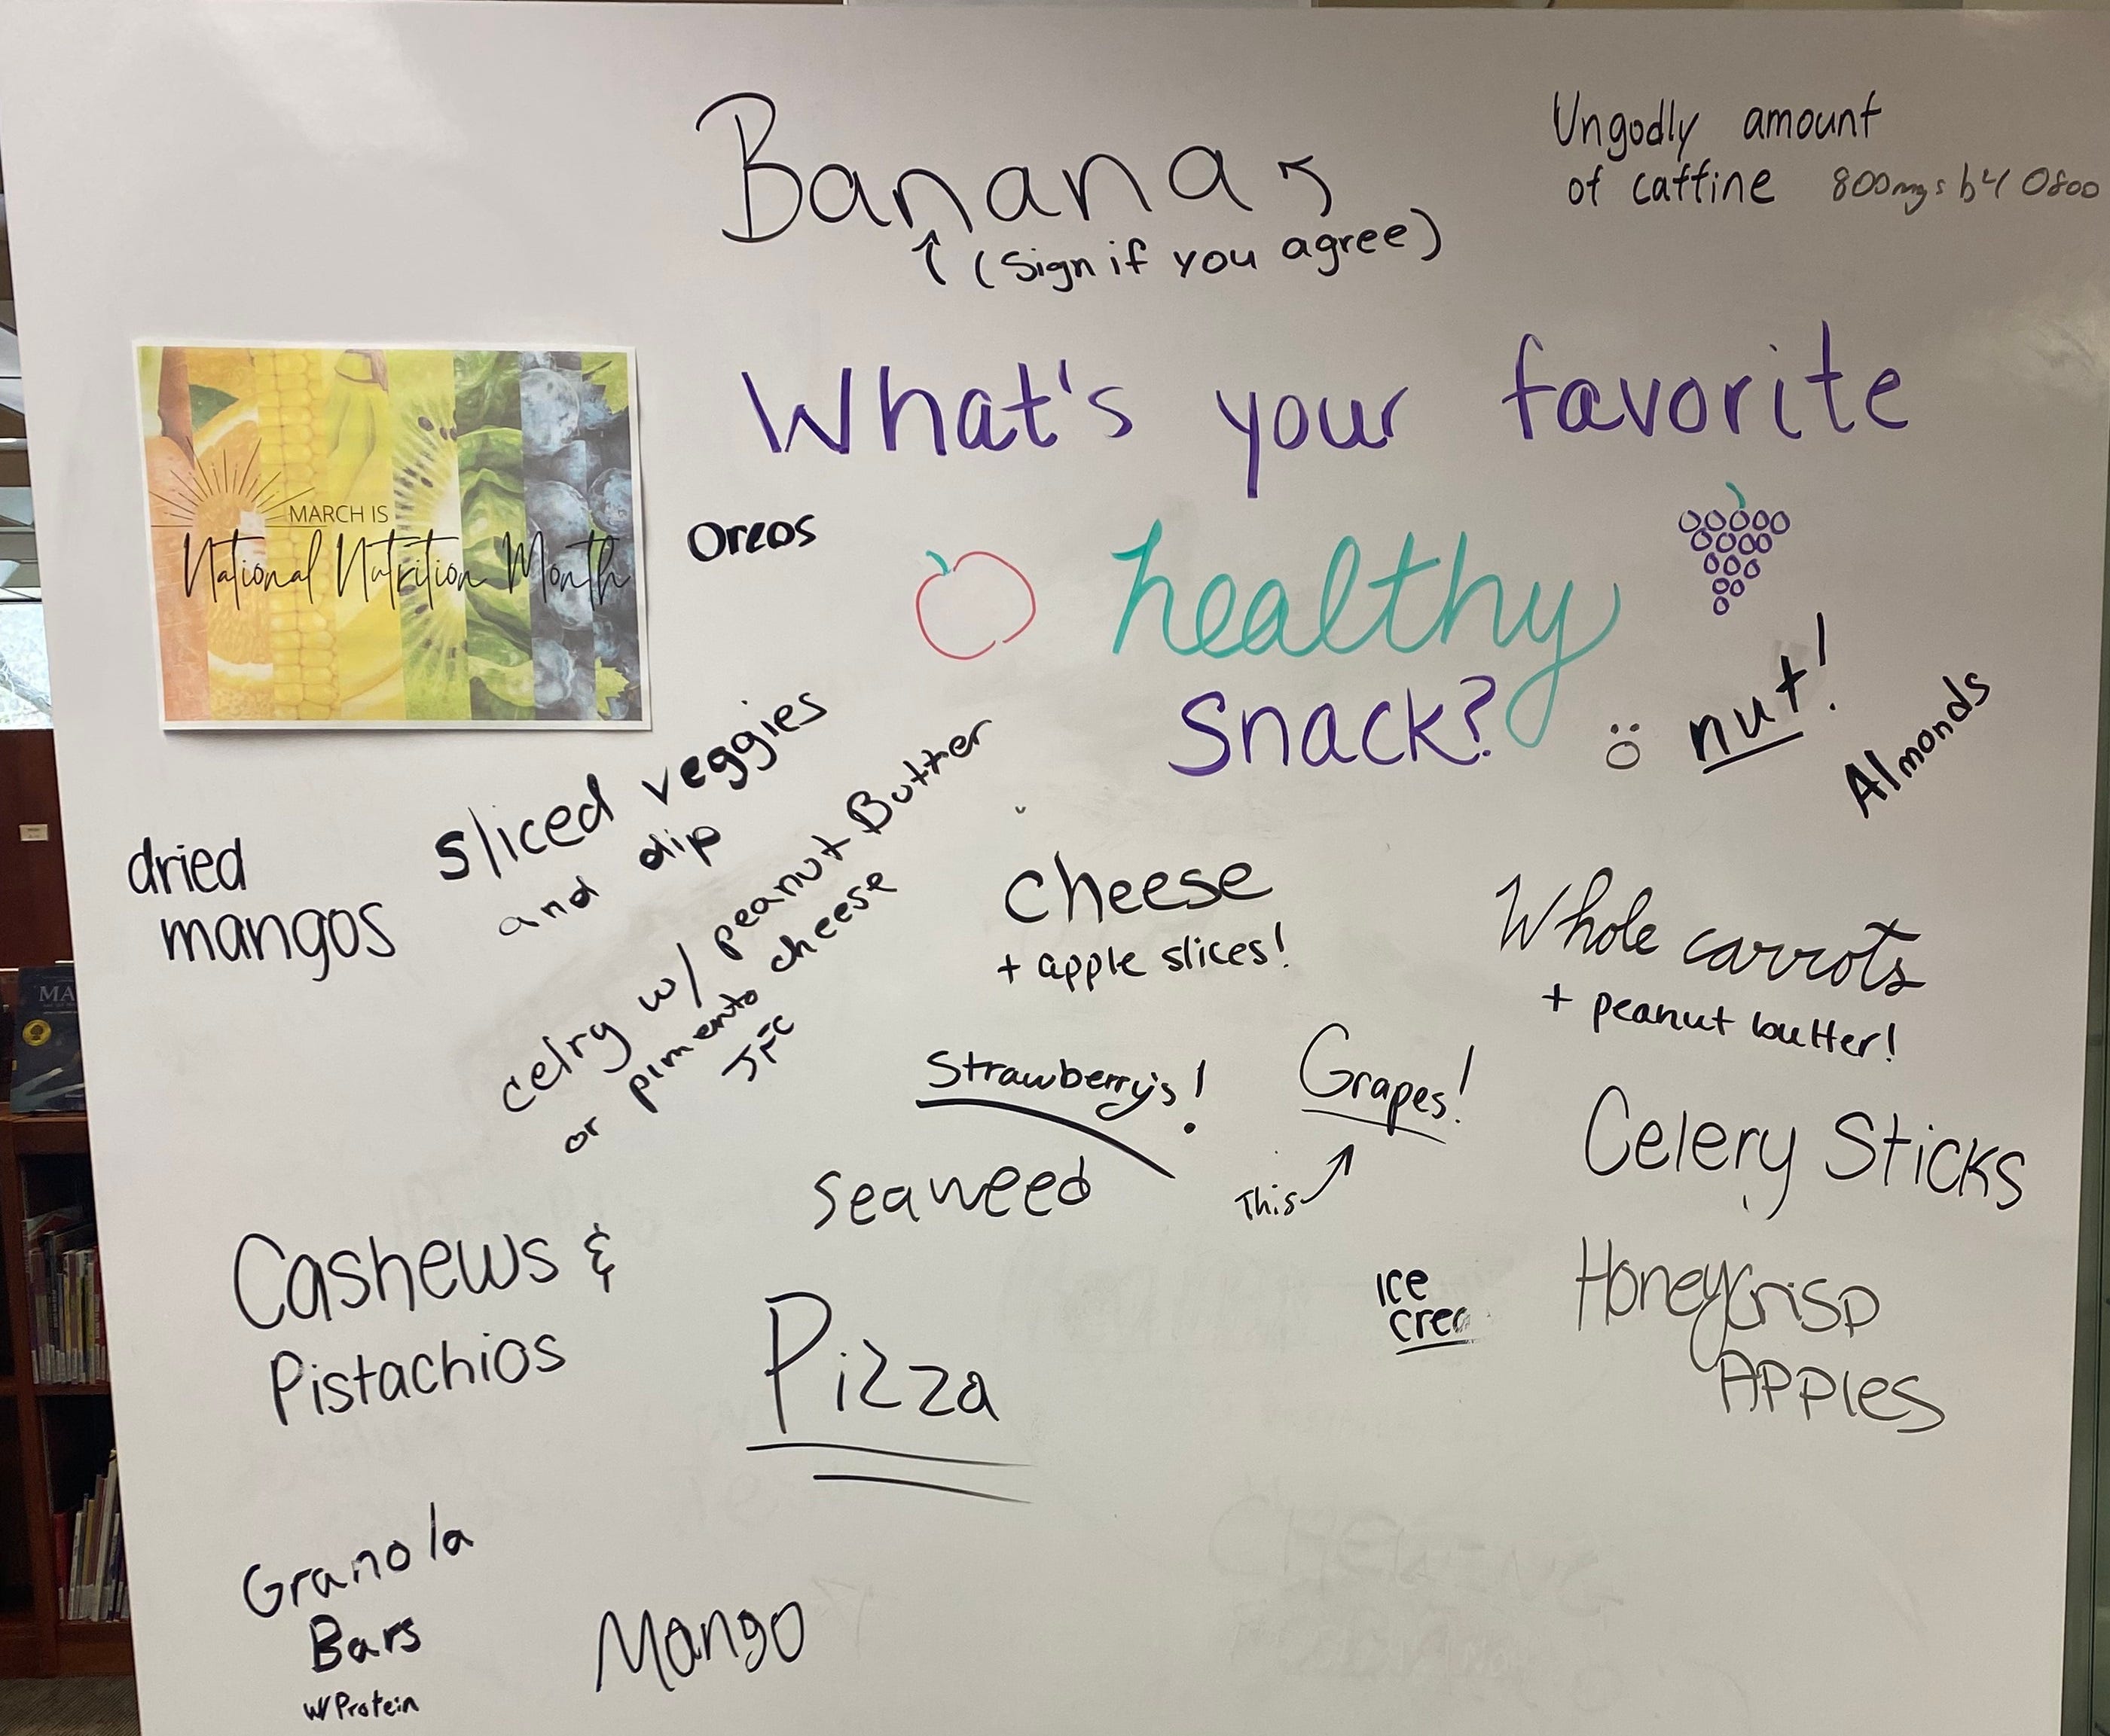 Banana
(Sign if you agree)
Ungodly amount
of caffine 800mgs b4 0800
What's your favorite
healthy
snack?
MARCH IS
National Nutrition Month
Oreos
nut!
Almonds
sliced veggies
and dip
dried
mangos
celry w/ peanut Butter
or pimento cheese
JFC
cheese
+ apple slices!
Whole carrots
+ peanut butter!
Strawberry's!
Grapes!
This
Celery Sticks
seaweed
Cashews &
Pistachios
Ice
crea
HoneyCrisp
Apples
Pizza
Granola
Bars
w/ Protein
Mango
MA